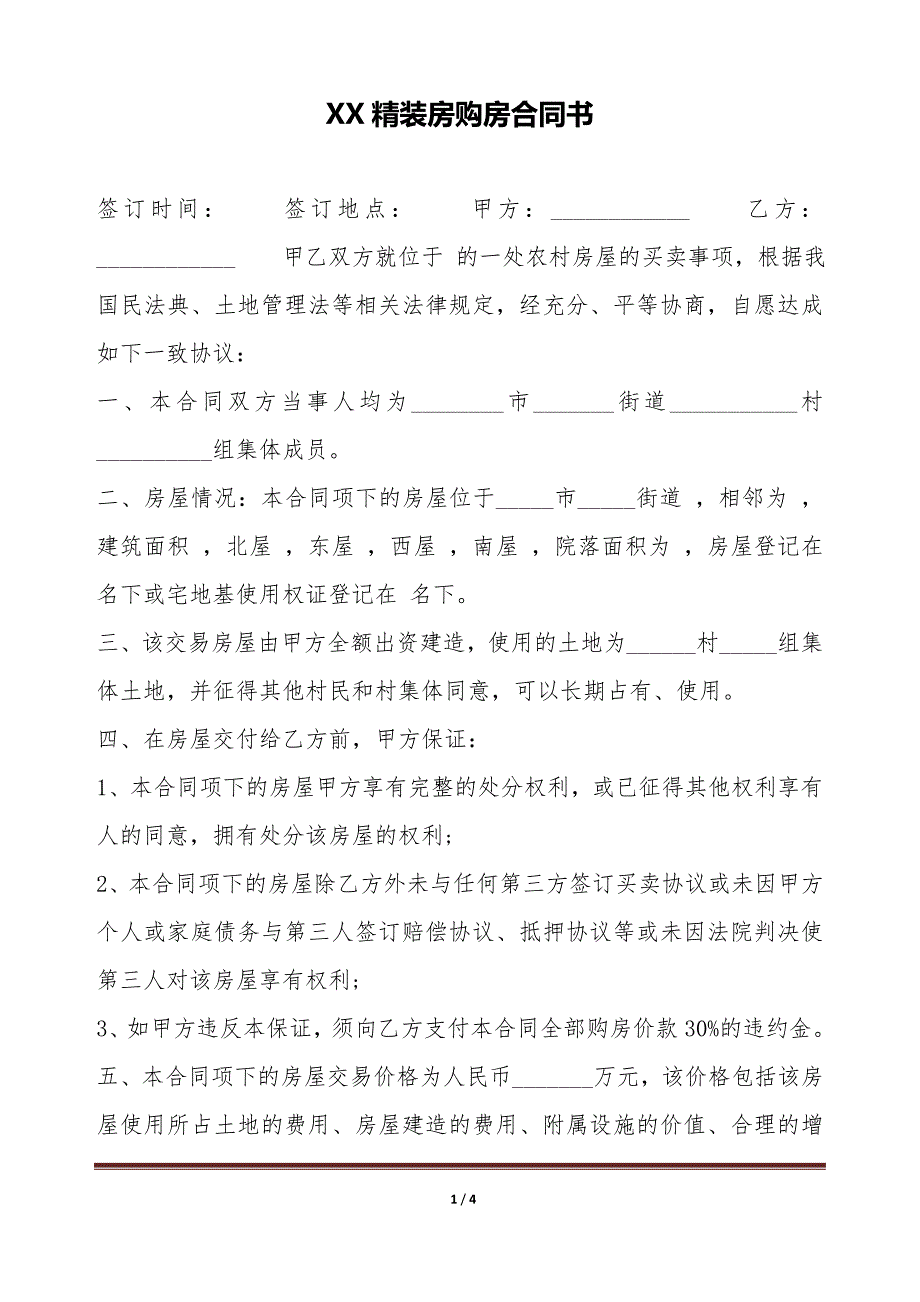 XX 精装房购房合同书
签订时间： 签订地点： 甲方：____________ 乙方：
____________ 甲乙双方就位于 的一处农村房屋的买卖事项，根据我
国民法典、土地管理法等相关法律规定，经充分、平等协商，自愿达成
如下一致协议：
一、本合同双方当事人均为________市_______街道___________村
__________组集体成员。
二、房屋情况：本合同项下的房屋位于_____市_____街道 ，相邻为 ，
建筑面积 ，北屋 ，东屋 ，西屋 ，南屋 ，院落面积为 ，房屋登记在
名下或宅地基使用权证登记在 名下。
三、该交易房屋由甲方全额出资建造，使用的土地为______村_____组集
体土地，并征得其他村民和村集体同意，可以长期占有、使用。
四、在房屋交付给乙方前，甲方保证：
1、本合同项下的房屋甲方享有完整的处分权利，或已征得其他权利享有
人的同意，拥有处分该房屋的权利;
2、本合同项下的房屋除乙方外未与任何第三方签订买卖协议或未因甲方
个人或家庭债务与第三人签订赔偿协议、抵押协议等或未因法院判决使
第三人对该房屋享有权利;
3、如甲方违反本保证，须向乙方支付本合同全部购房价款30%的违约金。
五、本合同项下的房屋交易价格为人民币_______万元，该价格包括该房
屋使用所占土地的费用、房屋建造的费用、附属设施的价值、合理的增
1 / 4